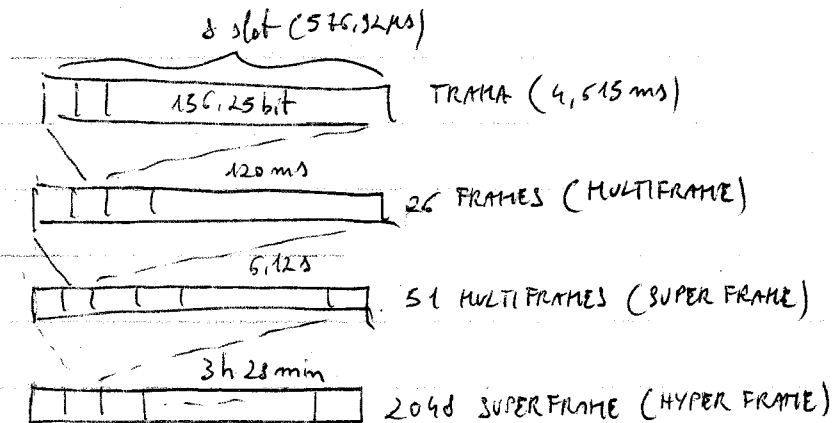 8 slot (576,92 μs)
156,25 bit TRAMA (4,615 ms)
120 ms
26 FRAMES (MULTIFRAME)
6,12 s
51 MULTIFRAMES (SUPER FRAME)
3h 28 min
2048 SUPERFRAME (HYPER FRAME)